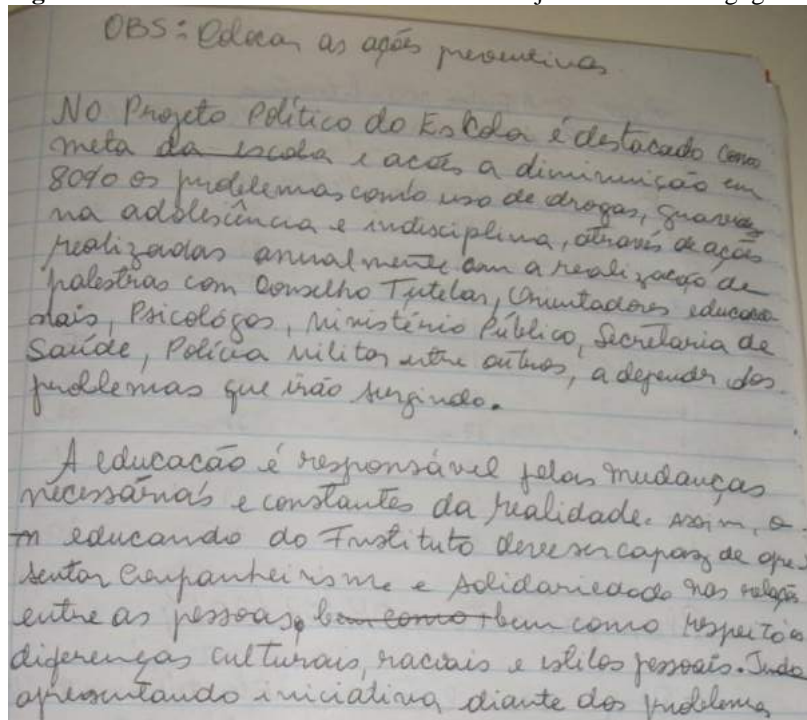 OBS: Colocar as ações preventivas
No Projeto Político da Escola é destacado como
meta da escola e ações a diminuição em
80% os problemas como uso de drogas, gravidez
na adolescência e indisciplina, através de ações
realizadas anualmente com a realização de
palestras com Conselho Tutelar, Orientadores educacio
nais, Psicológos, Ministério Público, Secretaria de
Saúde, Polícia Militar entre outros, a depender dos
problemas que irão surgindo.
A educacão é responsável pelas mudanças
necessárias e constantes da realidade. Assim, o
educando do Instituto deve ser capaz de apre
sentar companheirismo e solidariedade nas relações
entre as pessoas, bem como bem como respeito as
diferenças culturais, raciais e estilos pessoais. Tudo
apresentando iniciativa diante dos problema